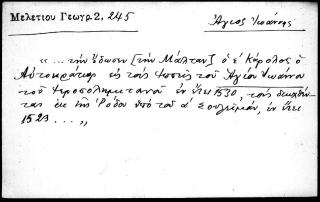 Μελετίου Γεωγρ. 2, 245
Ἅγιος Ἰωάννης
"... τὴν ἔδωσεν [τὴν Μάλταν] ὁ ε´ Κάρολος ὁ
Αὐτοκράτωρ εἰς τοὺς ἱππεῖς τοῦ Ἁγίου Ἰωάννου
τοῦ Ἱεροσολημιτανοῦ ἐν ἔτει 1530, τοὺς διωχθέν-
τας ἐκ τῆς Ῥόδου ὑπὸ τοῦ α´ Σουλεϊμάν, ἐν ἔτει
1523 ... "